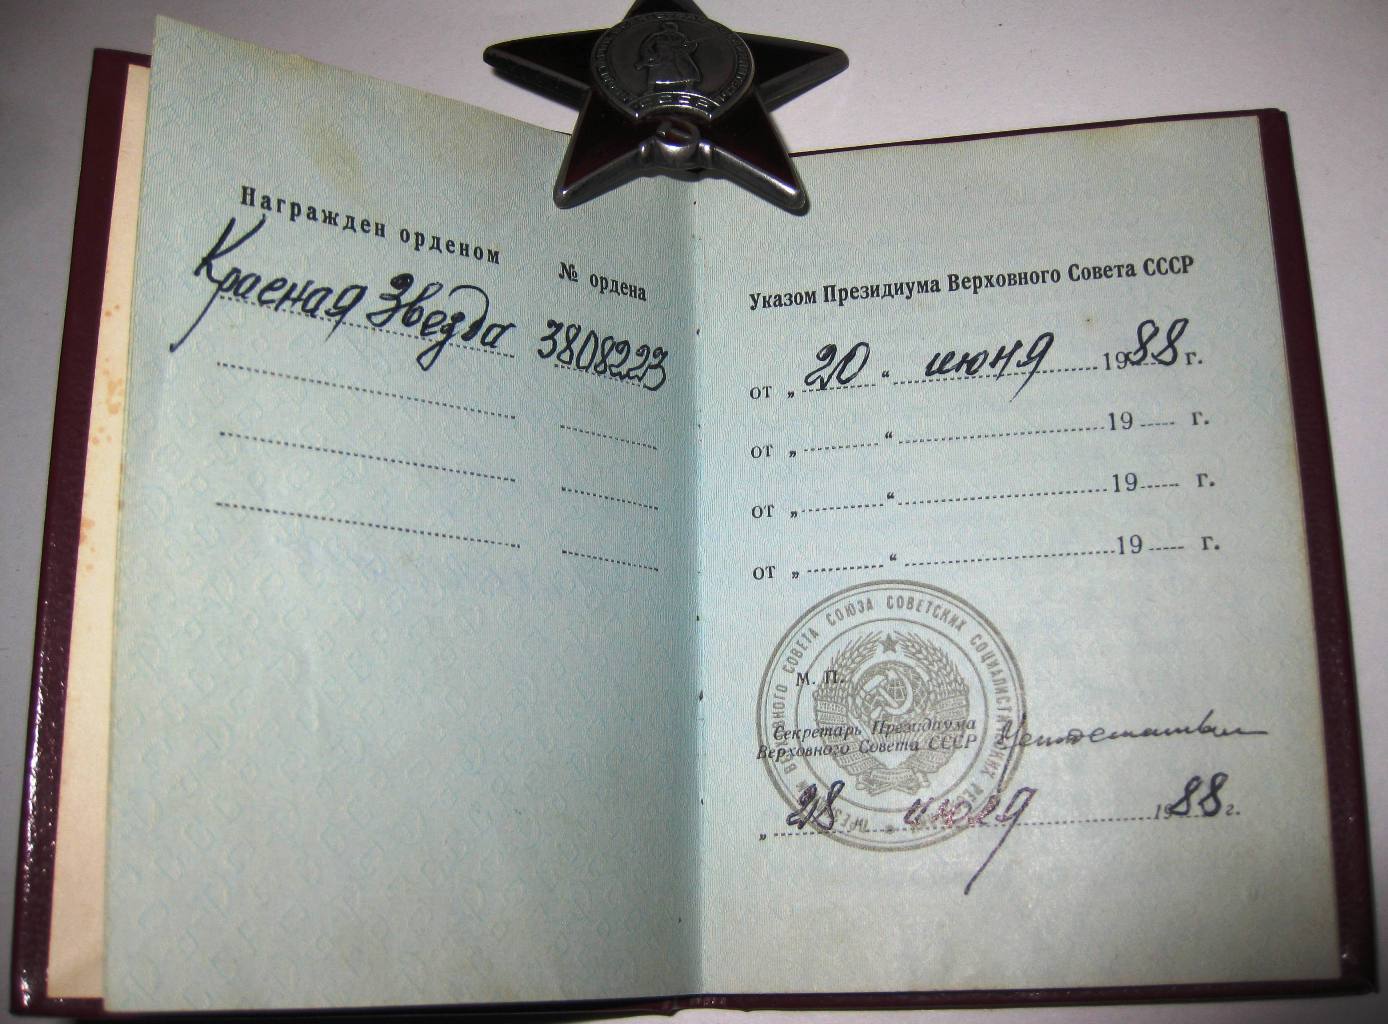 СССР
Награжден орденом
№ ордена
Красная Звезда 3808223
Указом Президиума Верховного Совета СССР
от „ 20 “ июня 1988 г.
от „ “ 19 г.
от „ “ 19 г.
от „ “ 19 г.
ВЕРХОВНОГО СОВЕТА СОЮЗА СОВЕТСКИХ СОЦИАЛИСТИЧЕСКИХ
М. П.
Секретарь Президиума
Верховного Совета СССР
„ 28 1988 г.